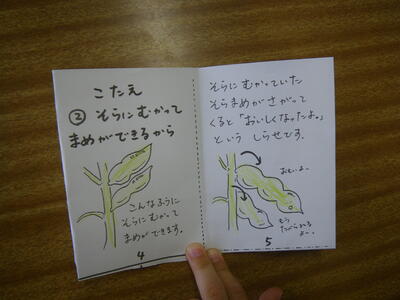 こたえ
② そらにむかって
まめができるから
こんなふうに
そらにむかって
まめができます。
4
そらにむかっていた
そらまめがさがって
くると「おいしくなったよ。」
という しらせです。
おもいよー
もう
たべられる
よー。
5